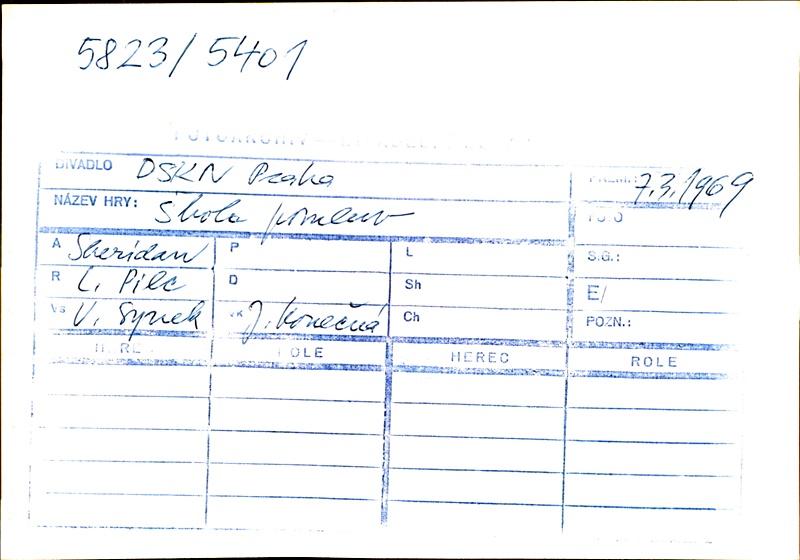 5823/5401
DIVADLO DSKN Praha PREM.: 7.3.1969
NÁZEV HRY: Škola pomluv FOTO
A Sheridan P L S.G.:
R L. Pilc D Sh E/
Vs V. Synek VK J. Konečná Ch POZN.:
HEREC ROLE HEREC ROLE